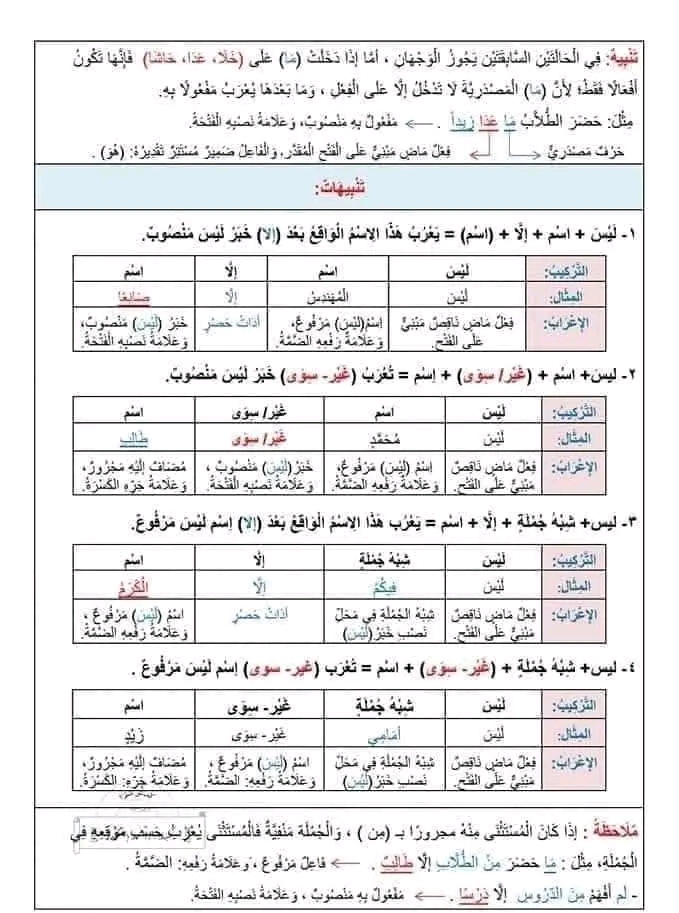 تَنْبِيهٌ: فِي الْحَالَتَيْنِ السَّابِقَتَيْنِ يَجُوزُ الْوَجْهَانِ ، أَمَّا إِذَا دَخَلَتْ (مَا) عَلَى (خَلَا، عَدَا، حَاشَا) فَإِنَّهَا تَكُونُ
أَفْعَالًا فَقَطْ؛ لِأَنَّ (مَا) الْمَصْدَرِيَّةَ لَا تَدْخُلُ إِلَّا عَلَى الْفِعْلِ ، وَمَا بَعْدَهَا يُعْرَبُ مَفْعُولًا بِهِ.
مِثْلَ: حَضَرَ الطُّلَّابُ مَا عَدَا زيداً . ← مَفْعُولٌ بِهِ مَنْصُوبٌ، وَعَلَامَةُ نَصْبِهِ الْفَتْحَةُ.
حَرْفٌ مَصْدَرِيٌّ فِعْلٌ مَاضٍ مَبْنِيٌّ عَلَى الْفَتْحِ الْمُقَدَّرِ، وَالْفَاعِلُ ضَمِيرٌ مُسْتَتِرٌ تَقْدِيرُهُ: (هُوَ) .
تَنْبِيهَاتٌ:
١- لَيْسَ + اسْم + إِلَّا + (اسْم) = يُعْرَبُ هَذَا الِاسْمُ الْوَاقِعُ بَعْدَ (إلا) خَبَرَ لَيْسَ مَنْصُوبٌ.
التَّرْكِيبُ: لَيْسَ اسْم إِلَّا اسْم
المِثَالُ: لَيْسَ الْمُهَنْدِسُ إِلَّا صَانِعًا
الإِعْرَابُ: فِعْلٌ مَاضٍ نَاقِصٌ مَبْنِيٌّ اِسْمُ(لَيْسَ) مَرْفُوعٌ، أَدَاتُ حَصْرٍ خَبَرُ (لَيْسَ) مَنْصُوبٌ،
عَلَى الْفَتْحِ. وَعَلَامَةُ رَفْعِهِ الضَّمَّةُ. وَعَلَامَةُ نَصْبِهِ الْفَتْحَةُ.
٢- ليسَ+ اسْم + (غَيْر/ سِوَى) + اِسْم = تُعْرَبُ (غَيْر- سِوَى) خَبَرَ لَيْسَ مَنْصُوبٌ.
التَّرْكِيبُ: لَيْسَ اسْم غَيْر/ سِوَى اسْم
المِثَال: لَيْسَ مُحَمَّدٌ غَيْرَ/ سِوَى طَالِبٍ
الإِعْرَابُ: فِعْلٌ مَاضٍ نَاقِصٌ اِسْمُ (لَيْسَ) مَرْفُوعٌ، خَبَرُ(لَيْسَ) مَنْصُوبٌ ، مُضَافٌ إِلَيْهِ مَجْرُورٌ،
مَبْنِيٌّ عَلَى الْفَتْحِ. وَعَلَامَةُ رَفْعِهِ الضَّمَّةُ. وَعَلَامَةُ نَصْبِهِ الْفَتْحَةُ. وَعَلَامَةُ جَرِّهِ الْكَسْرَةُ.
٣- ليس+ شِبْهُ جُمْلَةٍ + إِلَّا + اسْم = يُعْرَبُ هَذَا الِاسْمُ الْوَاقِعُ بَعْدَ (إلا) اِسْمَ لَيْسَ مَرْفُوعٌ.
التَّرْكِيبُ: لَيْسَ شِبْهُ جُمْلَةٍ إِلَّا اسْم
المِثَالُ: لَيْسَ فِيكُمْ إِلَّا الْكَرَمُ
الإِعْرَابُ: فِعْلٌ مَاضٍ نَاقِصٌ شِبْهُ الجُمْلَةِ فِي مَحَلِّ أَدَاتُ حَصْرٍ اسْمُ (لَيْسَ) مَرْفُوعٌ ،
مَبْنِيٌّ عَلَى الْفَتْحِ. نَصْبِ خَبَرُ(لَيْسَ) وَعَلَامَةُ رَفْعِهِ الضَّمَّةُ.
٤- ليس+ شِبْهُ جُمْلَةٍ + (غَيْر- سِوَى) + اسْم = تُعْرَب (غير- سوى) اِسْمَ لَيْسَ مَرْفُوعٌ .
التَّرْكِيبُ: لَيْسَ شِبْهُ جُمْلَةٍ غَيْر- سِوَى اسْم
المِثَالُ: لَيْسَ أَمَامِي غَيْر- سِوَى زَيْدٍ
الإِعْرَابُ: فِعْلٌ مَاضٍ نَاقِصٌ شِبْهُ الْجُمْلَةِ فِي مَحَلِّ اسْمُ (لَيْسَ) مَرْفُوعٌ ، مُضَافٌ إِلَيْهِ مَجْرُورٌ،
مَبْنِيٌّ عَلَى الْفَتْحِ. نَصْبِ خَبَرُ(لَيْسَ) وَعَلَامَةُ رَفْعِهِ: الضَّمَّةُ. وَعَلَامَةُ جَرِّهِ: الْكَسْرَةُ.
مُلَاحَظَةُ : إِذَا كَانَ الْمُسْتَثْنَى مِنْهُ مجرورًا بـ (مِن ) ، وَالْجُمْلَةُ مَنْفِيَّةٌ فَالْمُسْتَثْنَى يُعْرَبُ حَسَبَ مَوْقِعِهِ فِي
الْجُمْلَةِ، مِثْلَ : مَا حَضَرَ مِنَ الطُّلَّابِ إِلَّا طَالِبٌ . ← فَاعِلٌ مَرْفُوعٌ ، وَعَلَامَةُ رَفْعِهِ: الضَّمَّةُ .
- لَم أَفْهَمْ مِنَ الدُّرُوسِ إِلَّا دَرْسًا . ← مَفْعُولٌ بِهِ مَنْصُوبٌ ، وَعَلَامَةُ نَصْبِهِ الفَتْحَةُ.